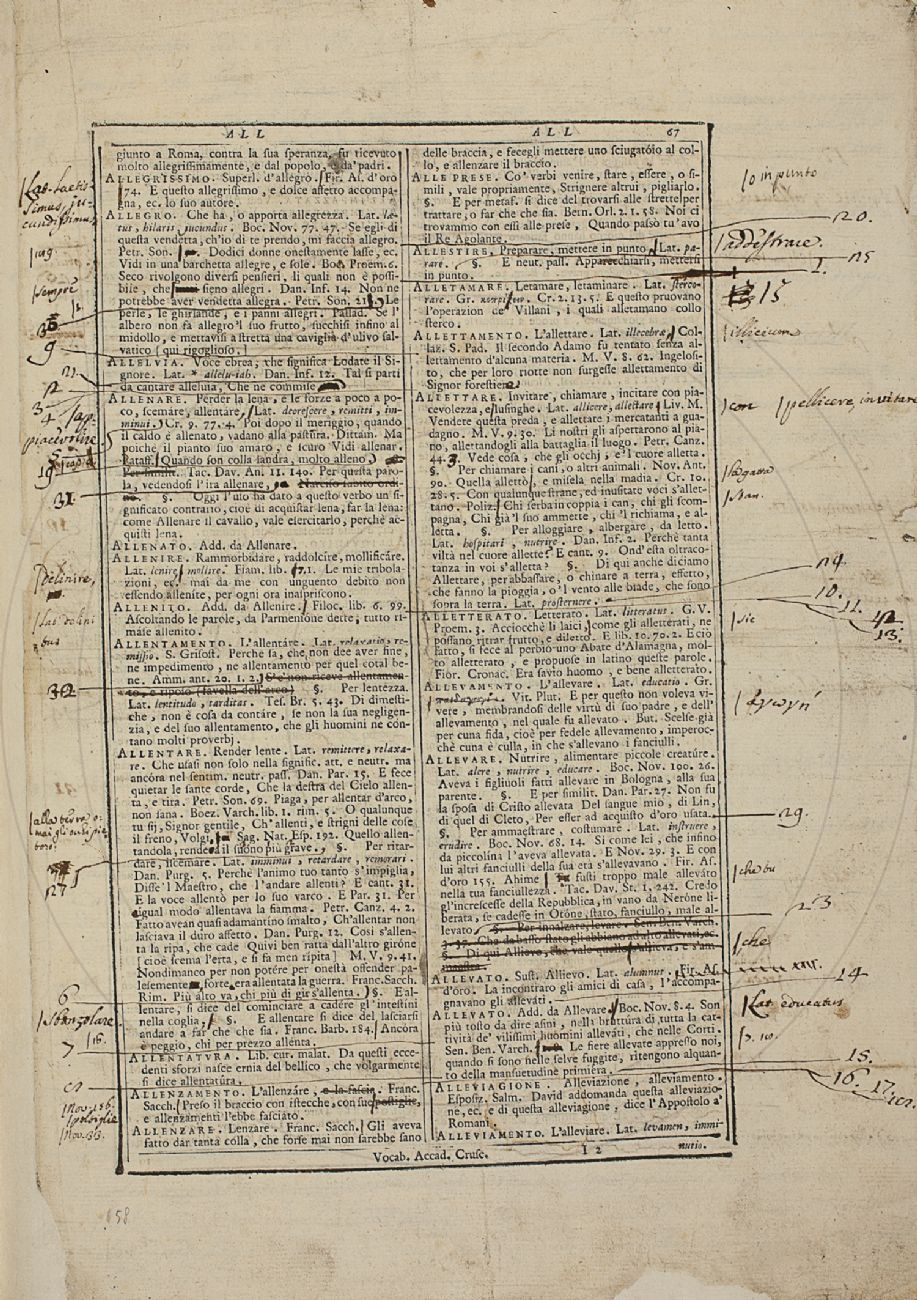 ALL
ALL
67
giunto a Roma, contra la sua speranza, fu ricevuto
molto allegrissimamente, e dal popolo, e da' padri.
ALLEGRISSIMO. Superl. d'allegro. Fir. As. d'oro
74. E questo allegrissimo, e dolce assetto accompa-
gna, ec. lo suo autore.
ALLEGRO. Che ha, o apporta allegrezza. Lat. lę-
tus, hilaris, jucundus. Boc. Nov. 77. 47. Se egli di
questa vendetta, ch'io di te prendo, mi faccia allegro.
Petr. Son. Dodici donne onestamente lasse, ec.
Vidi in una barchetta allegre, e sole. Boc. Proem. 6.
Seco rivolgono diversi pensieri, li quali non è possi-
bile, che sieno allegri. Dan. Inf. 14. Non ne
potrebbe aver vendetta allegra. Petr. Son. 21 Le
perle, le ghirlande, e i panni allegri. Pallad. Se l'
albero non fa allegro'l suo frutto, succhisi infino al
midollo, e mettavisi a stretta una caviglia d'ulivo sal-
vatico [qui rigoglioso.]
ALLELVIA. Voce ebrea, che significa Lodate il Si-
gnore. Lat. * allelu-iah. Dan. Inf. 12. Tal si parti
da cantare alleluia, Che ne commise
ALLENARE. Perder la lena, e le forze a poco a po-
co, scemáre, allentáre, Lat. decrescere, remitti, im-
minui. Cr. 9. 77. 4. Poi dopo il meriggio, quando
il caldo è allenato, vadano alla pastura. Dittam. Ma
poichè il pianto suo amaro, e scuro Vidi allenar.
Pataff. Quando son colla landra, molto alleno.
Per simílit. Tac. Dav. An. 11. 140. Per questa paro-
la, vedendosi l'ira allenare, Narciso subito ordi-
nò. §. Oggi l'uso ha dato a questo verbo un si-
gnificato contrario, cioè di acquistar lena, far la lena:
come Allenare il cavallo, vale esercitarlo, perchè ac-
quisti lena.
ALLENATO. Add. da Allenare.
ALLENIRE. Rammorbidáre, raddolcíre, mollificáre.
Lat. lenire, mollire. Fiam. lib. 7.1. Le mie tribola-
zioni, ec. mai da me con unguento debito non
essendo allenite, per ogni ora inaspriscono.
ALLENITO. Add. da Allenire. Filoc. lib. 6. 99.
Ascoltando le parole, da Parmenione dette, tutto ri-
mase allenito.
ALLENTAMENTO. L'allentáre. Lat. relaxatio, re-
missio. S. Grisost. Perchè fa, che non dee aver fine,
ne impedimento, ne allentamento per quel cotal be-
ne. Amm. ant. 20. 1. 2. S'e' non riceve allentamen-
to, e riposo (favella dell'arco) §. Per lentezza.
Lat. lentitudo, tarditas. Tes. Br. 5. 43. Di dimesti-
che, non è cosa da contáre, se non la sua negligen-
zia, e del suo allentamento, che gli huomini ne con-
tano molti proverbj.
ALLENTARE. Render lente. Lat. remittere, relaxa-
re. Che usasi non solo nella signific. att. e neutr. ma
ancóra nel sentim. neutr. pass. Dan. Par. 15. E fece
quietar le sante corde, Che la destra del Cielo allen-
ta, e tira. Petr. Son. 69. Piaga, per allentar d'arco,
non sana. Boez. Varch. lib. 1. rim. 5. O qualunque
tu sij, Signor gentile, Ch'allenti, e strigni delle cose
il freno, Volgi, Sag. Nat. Esp. 192. Quello allen-
tandola, rende il suono più grave. §. Per ritar-
dare, scemare. Lat. imminui, retardare, remorari.
Dan. Purg. 5. Perchè l'animo tuo tanto s'impiglia,
Disse'l Maestro, che l'andare allenti? E cant. 31.
E la voce allentò per lo suo varco. E Par. 31. Per
egual modo allentava la fiamma. Petr. Canz. 4. 2.
Fatto avean quasi adamantino smalto, Ch'allentar non
lasciava il duro assetto. Dan. Purg. 12. Così s'allen-
ta la ripa, che cade Quivi ben ratta dall'altro giróne
[cioè scema l'erta, e si fa men ripita] M. V. 9. 41.
Nondimanco per non potére per onestà offender pa-
lesemente forte, era allentata la guerra. Franc. Sacch.
Rim. Più alto va, chi più di gir s'allenta. §. E al-
lentare, si dice del cominciare a cadére gl'intestini
nella coglia, §. E allentare si dice del lasciarsi
andare a far che che sia. Franc. Barb. 184. Ancóra
è peggio, chi per prezzo allenta.
ALLENTATURA. Lib. cur. malat. Da questi ecce-
denti sforzi nasce ernia del bellico, che volgarmente
si dice allentatúra.
ALLENZAMENTO. L'allenzáre, e la fascia. Franc.
Sacch. Preso il braccio con istecche, con sue postiglie,
e allenzamenti l'ebbe fasciato.
ALLENZARE. Lenzare. Franc. Sacch. Gli aveva
fatto dar tanta colla, che forse mai non sarebbe sano
delle braccia, e fecegli mettere uno sciugatóio al col-
lo, e allenzare il braccio.
ALLE PRESE. Co' verbi venire, stare, essere, o si-
mili, vale propriamente, Strignere altrui, pigliarlo.
§. E per metaf. si dice del trovarsi alle strette per
trattare, o far che che sia. Bern. Orl. 2. 1. 58. Noi ci
trovammo con essi alle prese, Quando passò tu'avo
il Re Agolante.
ALLESTIRE. Preparare, mettere in punto. Lat. pa-
rare. §. E neut. pass. Apparecchiarsi, mettersi
in punto.
ALLETAMARE. Letamare, letaminare. Lat. sterco-
rare. Gr. Cr. 2. 13. 5. E questo pruovano
l'operazion de' Villani, i quali alletamano collo
sterco.
ALLETTAMENTO. L'allettare. Lat. illecebræ. Col-
laz. S. Pad. Il secondo Adamo fu tentato senza al-
lettamento d'alcuna materia. M. V. 8. 62. Ingelosi-
to, che per loro riotte non surgesse allettamento di
Signor forestiere.
ALLETTARE. Invitare, chiamare, incitare con pia-
cevolezza, e lusinghe. Lat. allicere, allectare. Liv. M.
Vendere questa preda, e allettare i mercatanti a gua-
dagno. M. V. 9. 30. Li nostri gli aspertarono al pia-
no, allettandogli alla battaglia il luogo. Petr. Canz.
44. 3. Vede cosa, che gli occhj, e'l cuore alletta.
§. Per chiamare i cani, o altri animali. Nov. Ant.
90. Quella allettò, e misela nella madia. Cr. 10.
28. 5. Con qualunque strane, ed inusitate voci s'allet-
tano. Poliz. Chi serba in coppia i can, chi gli scom-
pagna, Chi già'l suo ammette, chi'l richiama, e al-
letta. §. Per alloggiare, albergare, da letto.
Lat. hospitari, nutrire. Dan. Inf. 2. Perchè tanta
viltà nel cuore allette? E cant. 9. Ond'esta oltraco-
tanza in voi s'alletta? §. Di qui anche diciamo
Allettare, per abbassare, o chinare a terra, effetto,
che fanno la pioggia, o'l vento alle biade, che sono
sopra la terra. Lat. prosternere.
ALLETTERATO. Letterato. Lat. litteratus. G. V.
Proem. 3. Acciocchè li laici, come gli alletterati, ne
possano ritrar frutto, e diletto. E lib. 10. 70. 2. E ciò
fatto, si fece al perbio uno Abate d'Alamagna, mol-
to alletterato, e propuose in latino queste parole.
Fior. Cronac. Era savio huomo, e bene alletterato.
ALLEVAMENTO. L'allevare. Lat. educatio. Gr.
Vit. Plut. E per questo non voleva vi-
vere, membrandosi delle virtù di suo padre, e dell'
allevamento, nel quale fu allevato. But. Scelse già
per cuna fida, cioè per fedele allevamento, imperoc-
chè cuna è culla, in che s'allevano i fanciulli.
ALLEVARE. Nutríre, alimentare piccole creatúre.
Lat. alere, nutrire, educare. Boc. Nov. 100. 26.
Aveva i figliuoli fatti allevare in Bologna, alla sua
parente. §. E per similit. Dan. Par. 27. Non fu
la sposa di Cristo allevata Del sangue mio, di Lin,
di quel di Cleto, Per esser ad acquisto d'oro usata.
§. Per ammaestrare, costumare. Lat. instruere,
erudire. Boc. Nov. 68. 14. Si come lei, che infino
da piccolina l'aveva allevata. E Nov. 29. 3. E con
lui altri fanciulli della sua età s'allevavano. Fir. As.
d'oro 155. Ahime fusti troppo male alleváto
nella tua fanciullezza. Tac. Dav. St. 1. 242. Credo
gl'increscesse della Repubblica, in vano da Neróne li-
berata, se cadesse in Otóne, stato, fanciullo, male al-
levato. §. Per innalzare, levare. Sen. Ben. Varch.
3. 37. Che da basso stato gli abbiano ad alto allevati, ec.
§. Di qui Allievo, che vale quello s'alleva, e s'am-
maestra.
ALLEVATO. Sust. Allievo. Lat. alumnus. Fir. As.
d'oro. La incontraro gli amici di casa, l'accompa-
gnavano gli allevati.
ALLEVATO. Add. da Allevare. Boc. Nov. 8. 4. Son
più tosto da dire asini, nella bruttúra di tutta la cat-
tività de' vilissimi huomini allevati, che nelle Corti.
Sen. Ben. Varch. Le fiere allevate appresso noi,
quando si sono nelle selve fuggite, ritengono alquan-
to della mansuetudine primiera.
ALLEVIAGIONE. Alleviazione, alleviamento.
Esposiz. Salm. David addomanda questa alleviazio-
ne, ec. e di questa alleviagione, dice l'Appostolo a'
Romani.
ALLEVIAMENTO. L'alleviare. Lat. levamen, immi-
nutio.
Vocab. Accad. Crusc.
I 2
Lat. laetis-
simus, ju-
cundissimus
sempre
9
31
delinire,
6
7
58
o in punto
20.
15
illecium
con
pellicere, invitare
10.
11.
12
13.
sic
29.
che
14
Lat. educatus
15.
16.
17.